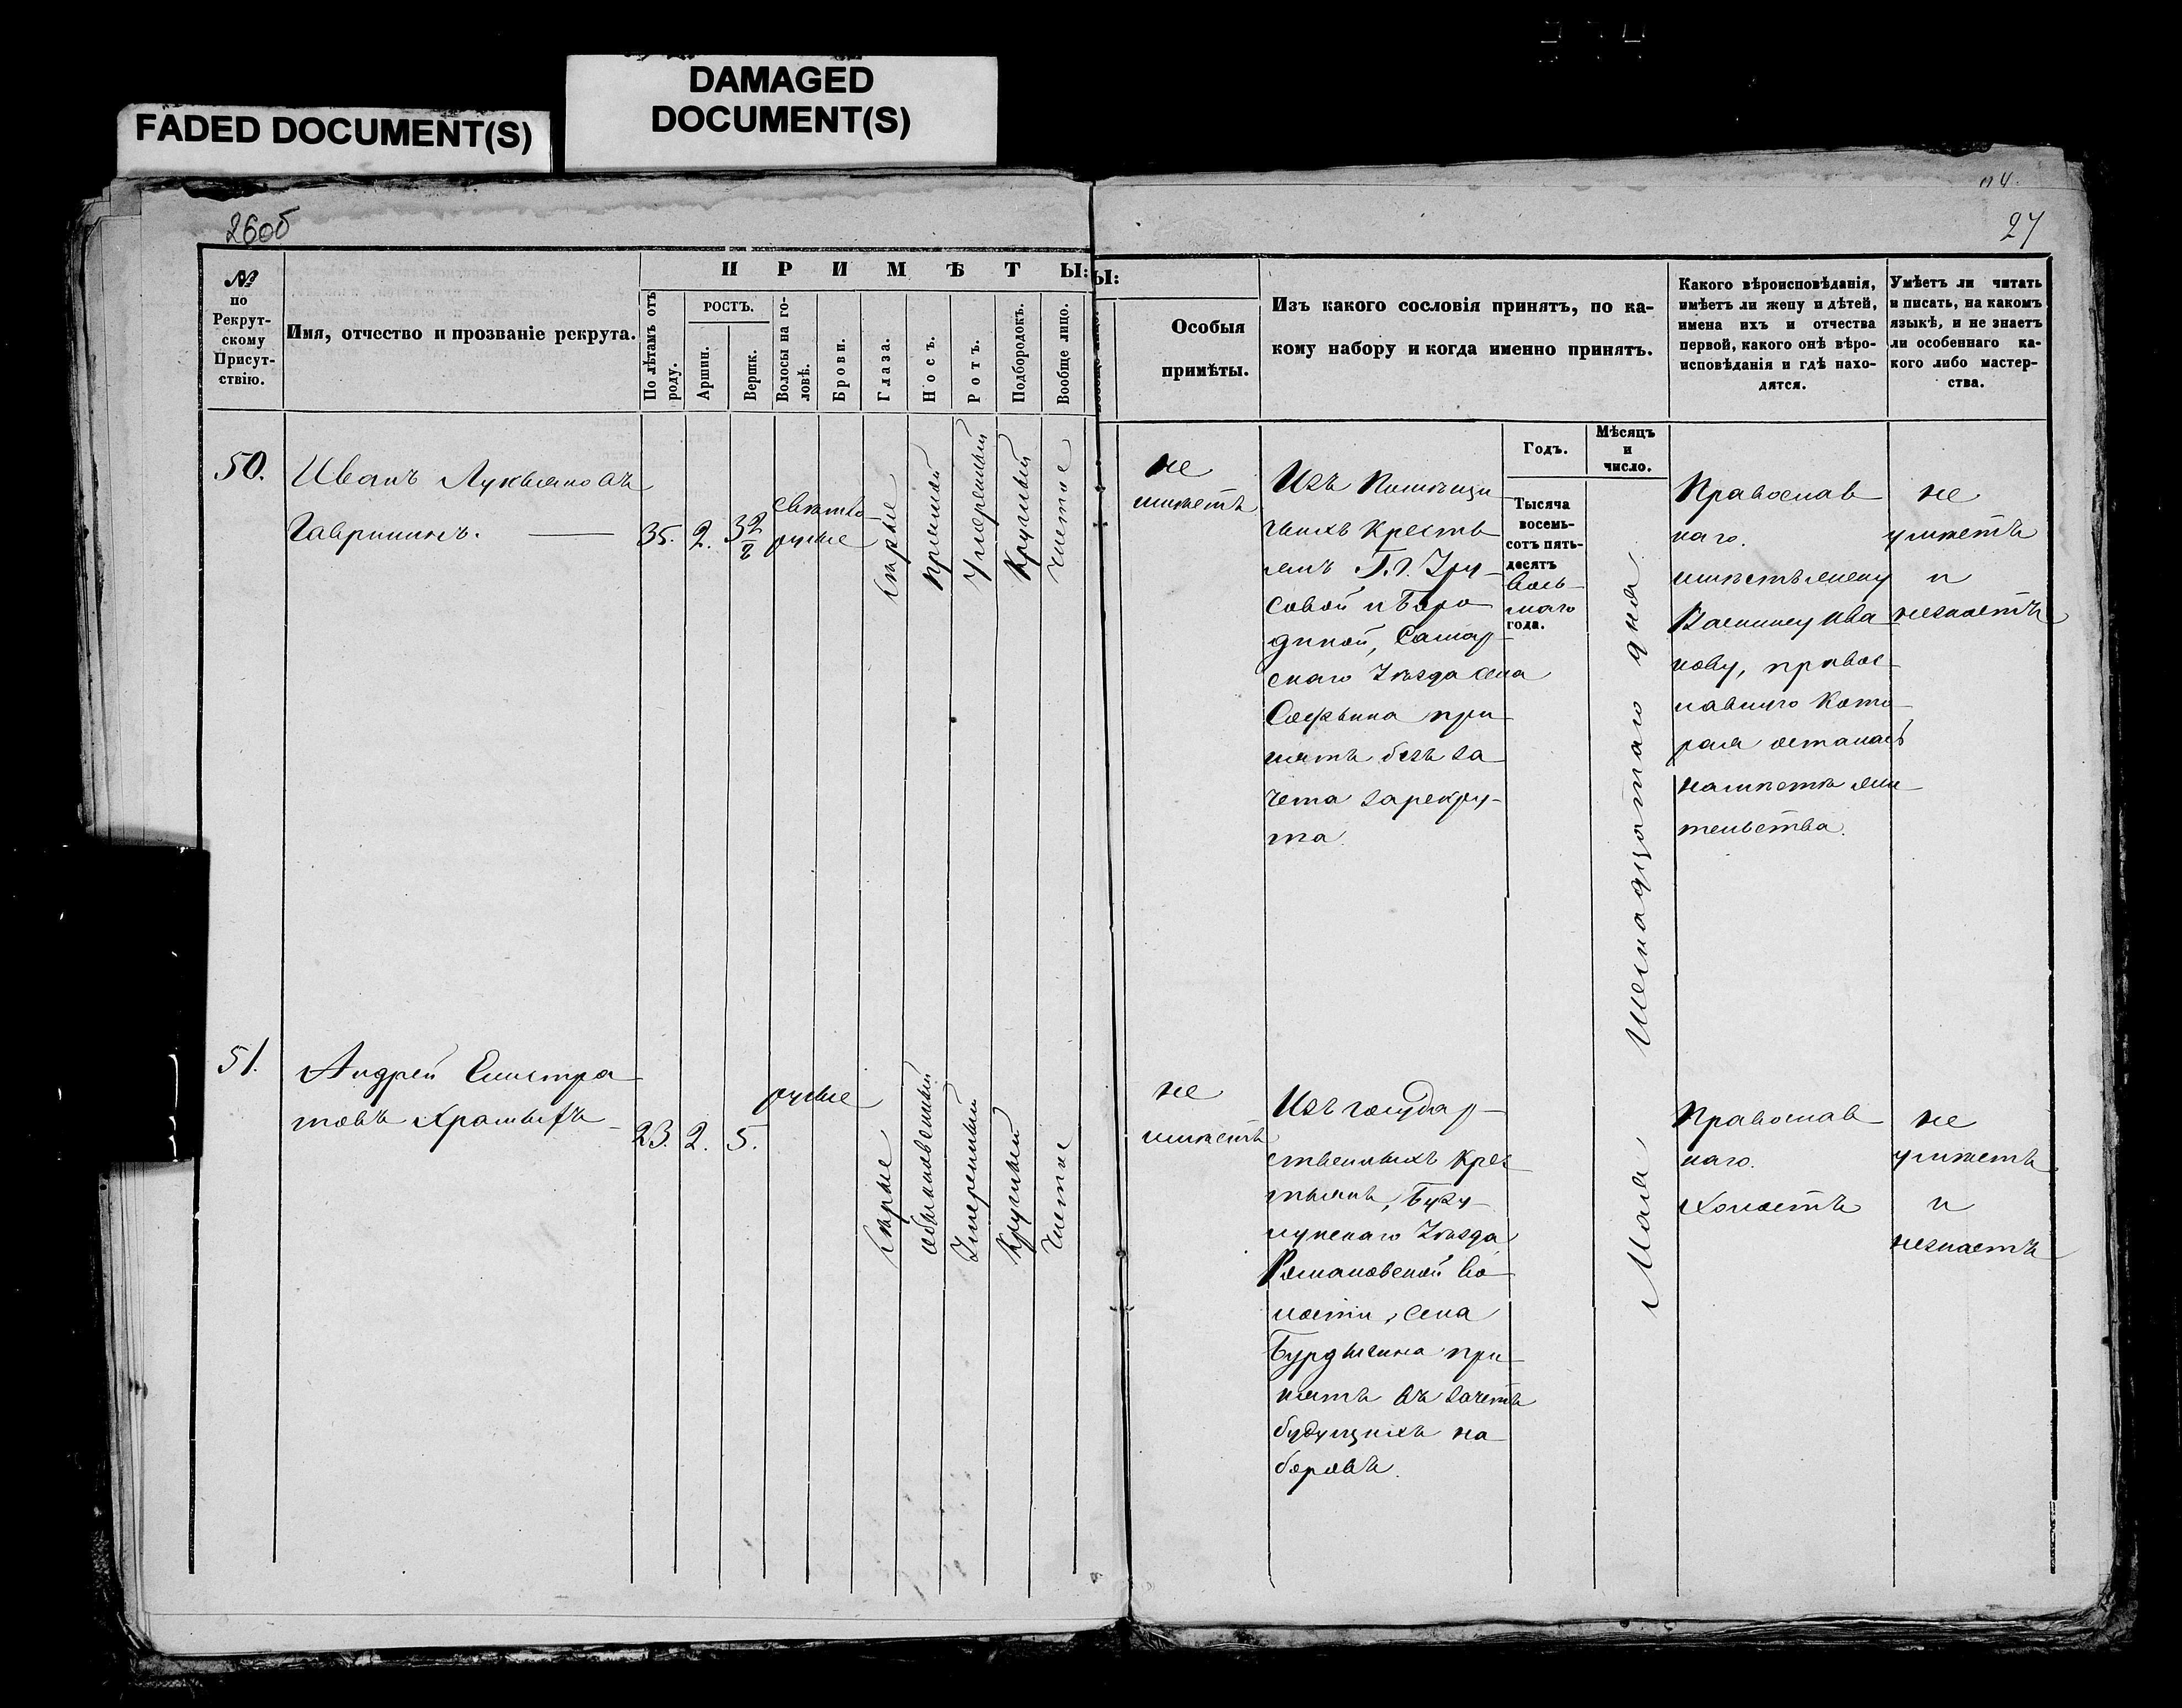 FADED DOCUMENT(S)
DAMAGED
DOCUMENT(S)
26об
27
№
по
Рекрут-
скому
Присут-
ствію.
Имя, отчество и прозваніе рекрута.
ПРИМѢТЫ:
По лѣтамъ отъ
роду.
РОСТЪ.
Аршин.
Вершк.
Волосы на го-
ловѣ.
Брови.
Глаза.
Носъ.
Ротъ.
Подбородокъ.
Вообще лицо.
Ы:
Особыя
примѣты.
Изъ какого сословія принятъ, по ка-
кому набору и когда именно принятъ.
Какого вѣроисповѣданія,
имѣетъ ли жену и дѣтей,
имена ихъ и отчества
первой, какого онѣ вѣро-
исповѣданія и гдѣ нахо-
дятся.
Умѣетъ ли читать
и писать, на какомъ
языкѣ, и не знаетъ
ли особеннаго ка-
кого либо мастер-
ства.
Годъ.
Мѣсяцъ
и
число.
50.
Иванъ Лукьяновъ
Гаврилинъ.
35.
2.
3 2/8
свѣтло
русые
сѣрые
прямой
Умѣренный
Круглый
чистое
не
имѣетъ
Изъ Помѣщи
чьихъ Кресть
янъ Г.г.
совой и Боро
диной, Самар
скаго Уѣзда села
Софьина при
нятъ безъ за
чета за рекру-
та.
Тысяча
восемь-
сотъ пять-
десятъ
вось-
маго
года.
Мая Шеснадцатаго дня
Православ
наго.
имѣетъ жену
Ива
нову, правос
лавную кото
рая осталась
на мѣстѣ жи
тельства.
не
умѣетъ
и
незнаетъ
51.
Андрей Елистра
товъ Храмыхъ
23.
2.
5.
русые
сѣрые
обыкновенный
Умеренный
Круглый
Чистое
не
имѣетъ
Изъ государ
ственныхъ Крес
тьянъ, Бузу
лукскаго Уѣзда
Романовской во
лости, села
Бурдыгина при
нятъ въ зачетъ
будущихъ на
боровъ.
Православ
наго.
холостъ
не
умѣетъ
и
незнаетъ